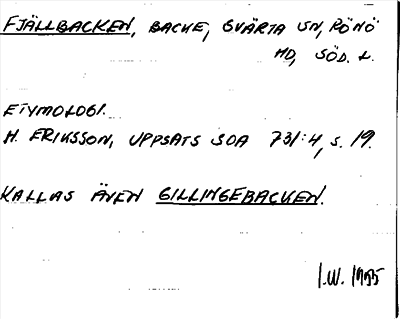 FJÄLLBACKEN, BACKE, SVÄRTA SN, RÖNÖ
HD, SÖD. L.
ETYMOLOGI.
H. ERIKSSON, UPPSATS SOA 731:4, S. 19.
KALLAS ÄVEN GILLINGEBACKEN.
I.W. 1955